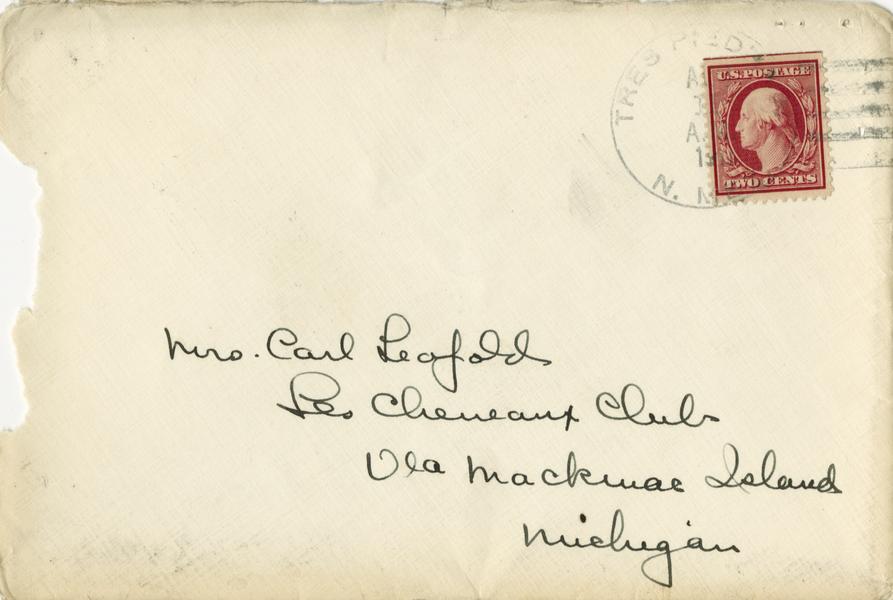 TRES PIEDRAS
U.S. POSTAGE
A
N. M
TWO CENTS
Mrs. Carl Leopold
Les Cheneaux Club
Via Mackinac Island
Michigan